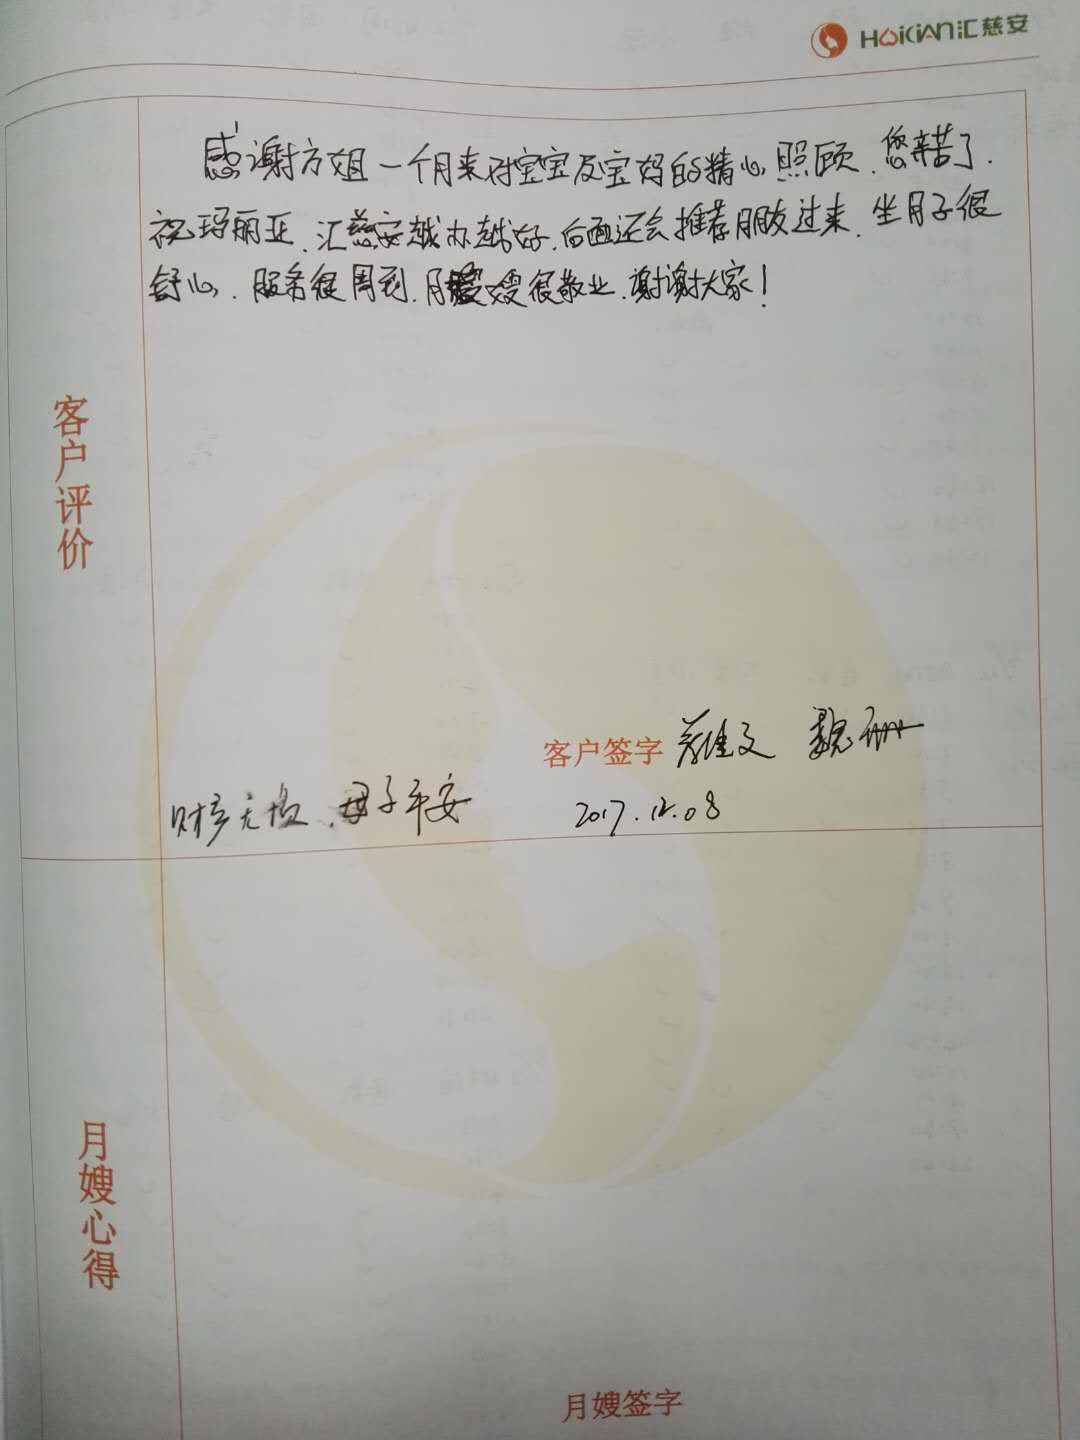 HUICIAN汇慈安
感谢方姐一个月来对宝宝及宝妈的精心照顾.您辛苦了.
祝玛丽亚、汇慈安越办越好.后面还会推荐朋友过来.坐月子很
舒心.服务很周到.月嫂很敬业.谢谢大家!
客户评价
客户签字 魏珊
财产无损.母子平安 2017.12.08
月嫂心得
月嫂签字